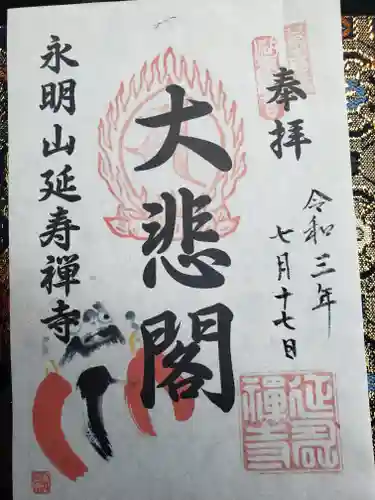 奉拝
令和三年
七月十七日
大悲閣
永明山延寿禅寺